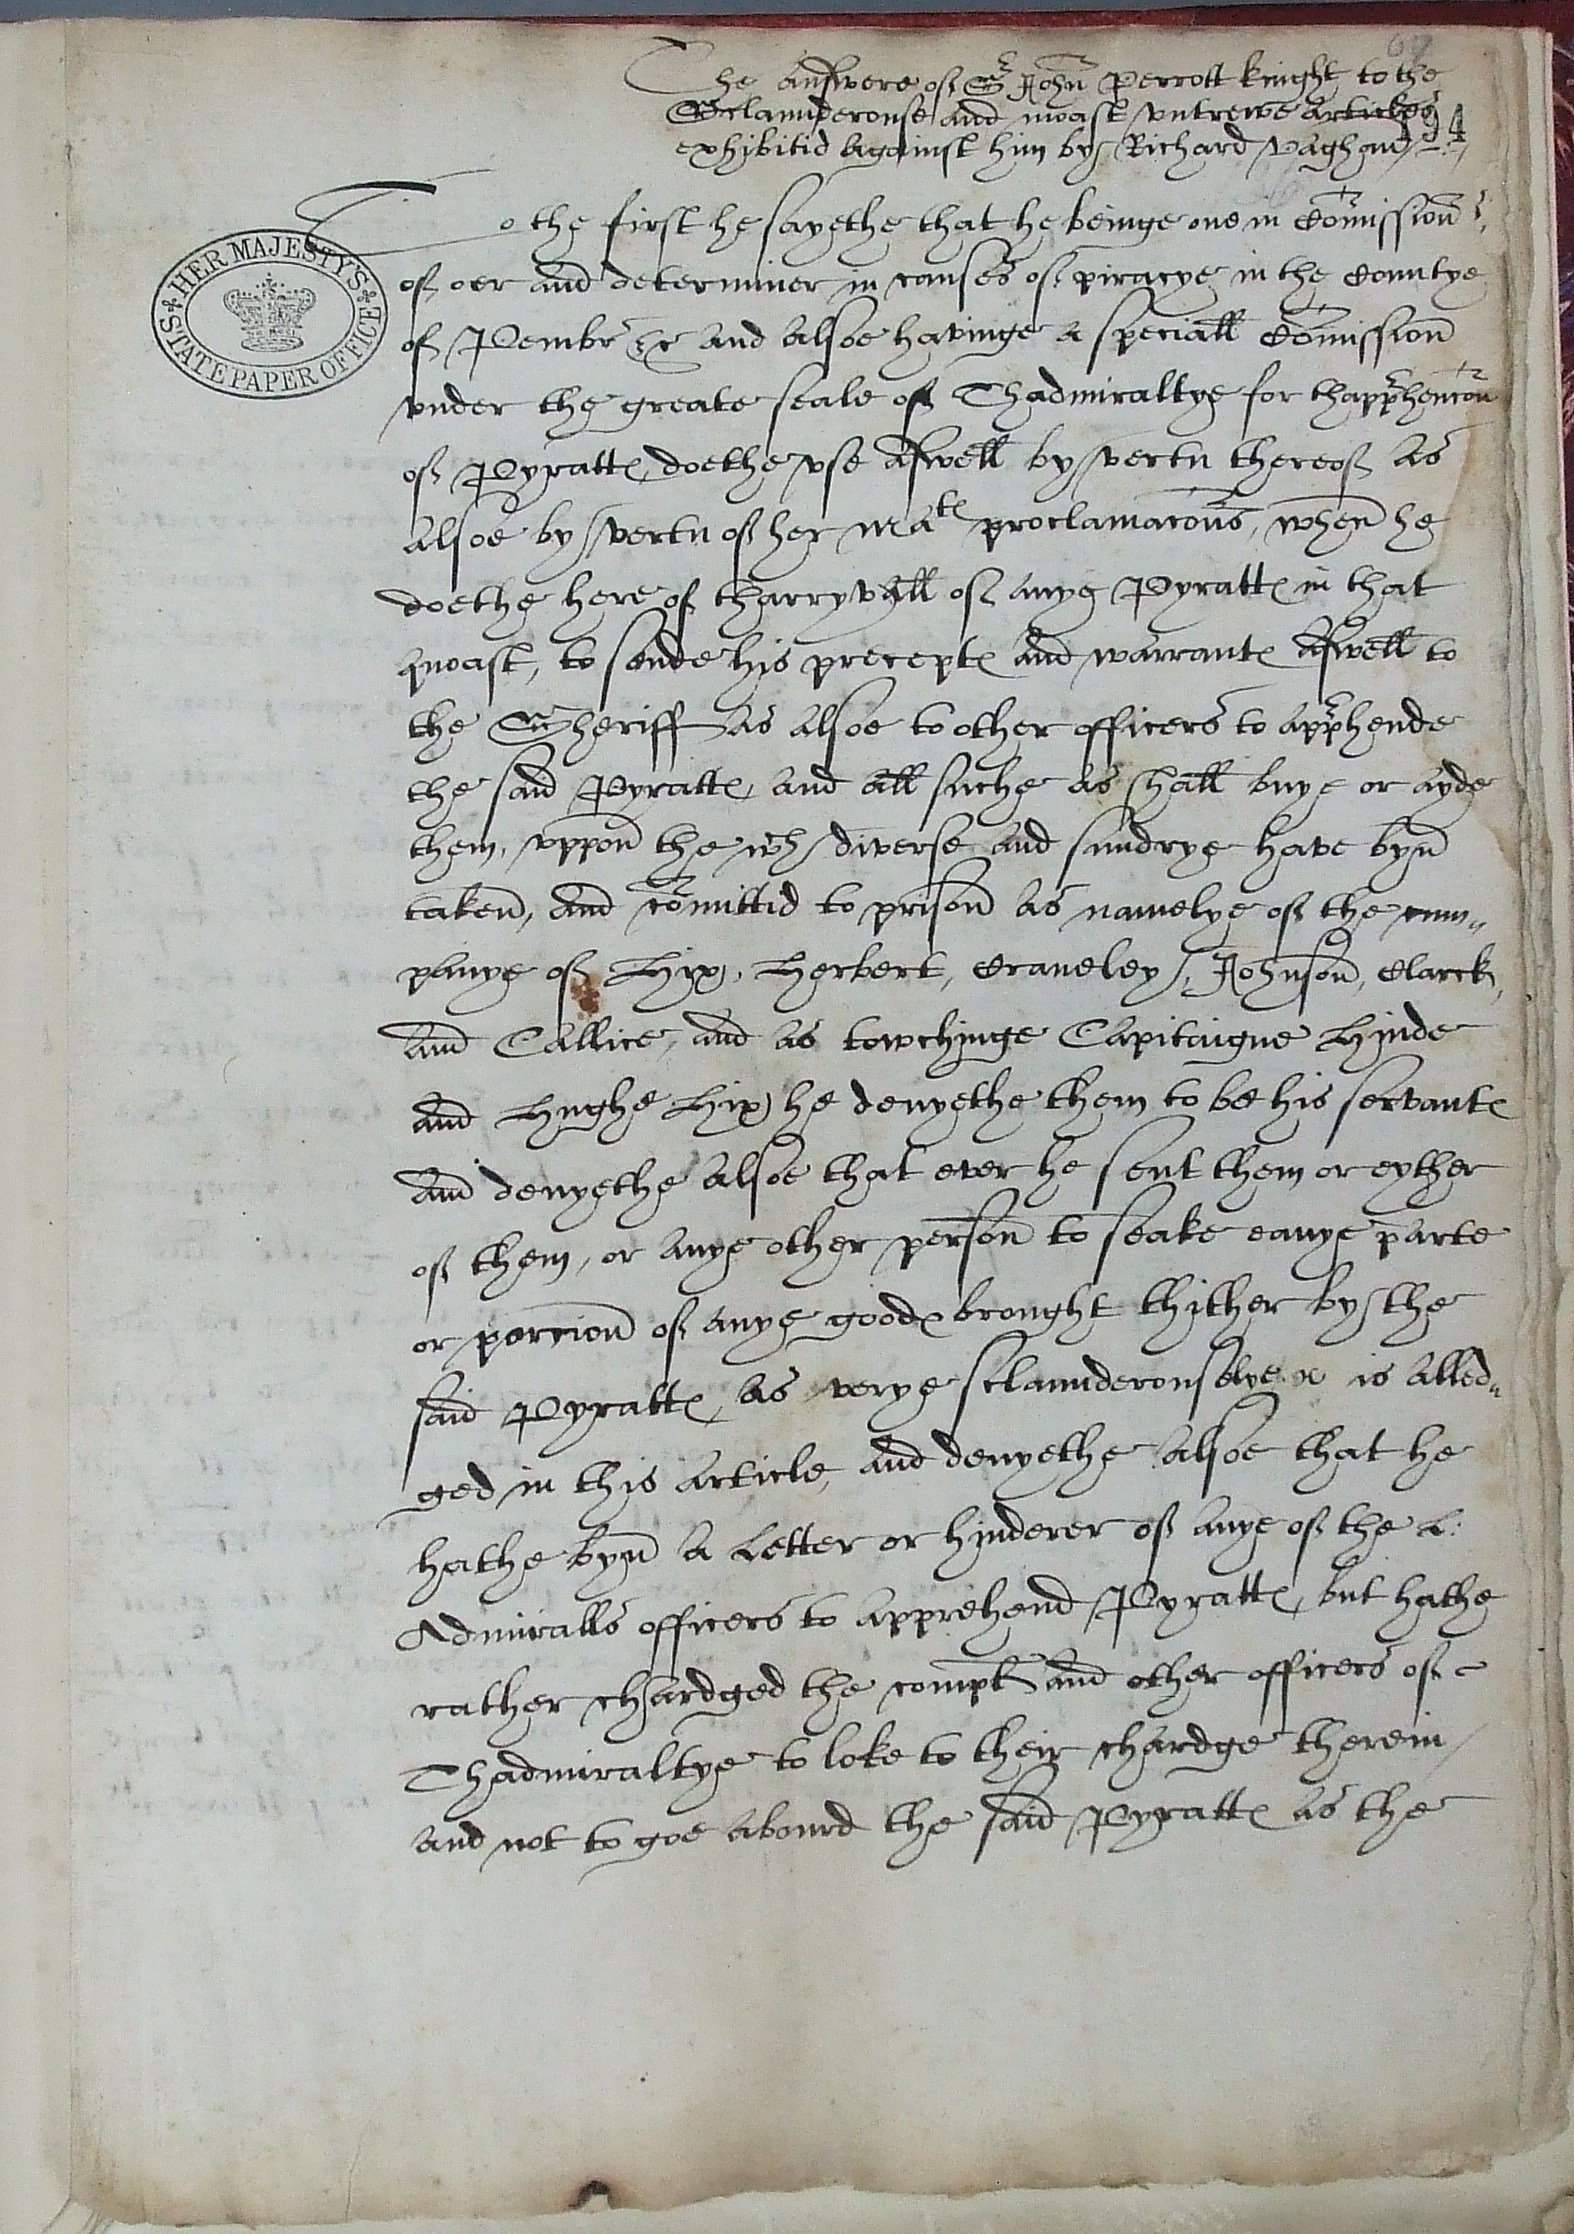 69
The answere of Sr John Perrott knight to the
Sclaunderouse and moast untrewe Articles
194
exhibitid against him by Richard Vaghan
To the first he sayethe that he beinge one in Comission
of oer and determiner in causes of piracye in the Countye
of Pembr &c and alsoe havinge a speciall Comission
under the greate seale of Thadmiraltye for thapprhencon
of Pyrattes, doethe use aswell by vertu thereof as
alsoe by vertu of her Mates proclamacons, when he
doethe here of tharryvall of anye Pyrattes in that
quoast, to sende his preceptes and warrantes aswell to
the Sheriff as alsoe to other officers to apprhende
the said Pyrattes, and all suche as shall buye or ayde
them, uppon the wch diverse and sundrye have byn
taken, and comittid to prison as namelye of the cum
panye of Hix, Herbert, Craveley, Johnson, Clarck,
and Callice, and as towchinge Capitaigne Hinde
and Hughe Hix, he denyethe them to be his servantes
and denyethe alsoe that ever he sent them or eyther
of them, or anye other person to seake eanye parte
or porcion of anye goodes brought thither by the
said Pyrattes, as verye sclaunderouselye is alled
ged in this article, and denyethe alsoe that he
hathe byn a Letter or hinderer of anye of the L:
Admiralls officers to apprehend Pyrattes, but hathe
rather chardged the compt and other officers of
Thadmiraltye to loke to their chardge therein
and not to goe abourd the said Pyrattes as the
HER MAJESTY'S
STATE PAPER OFFICE